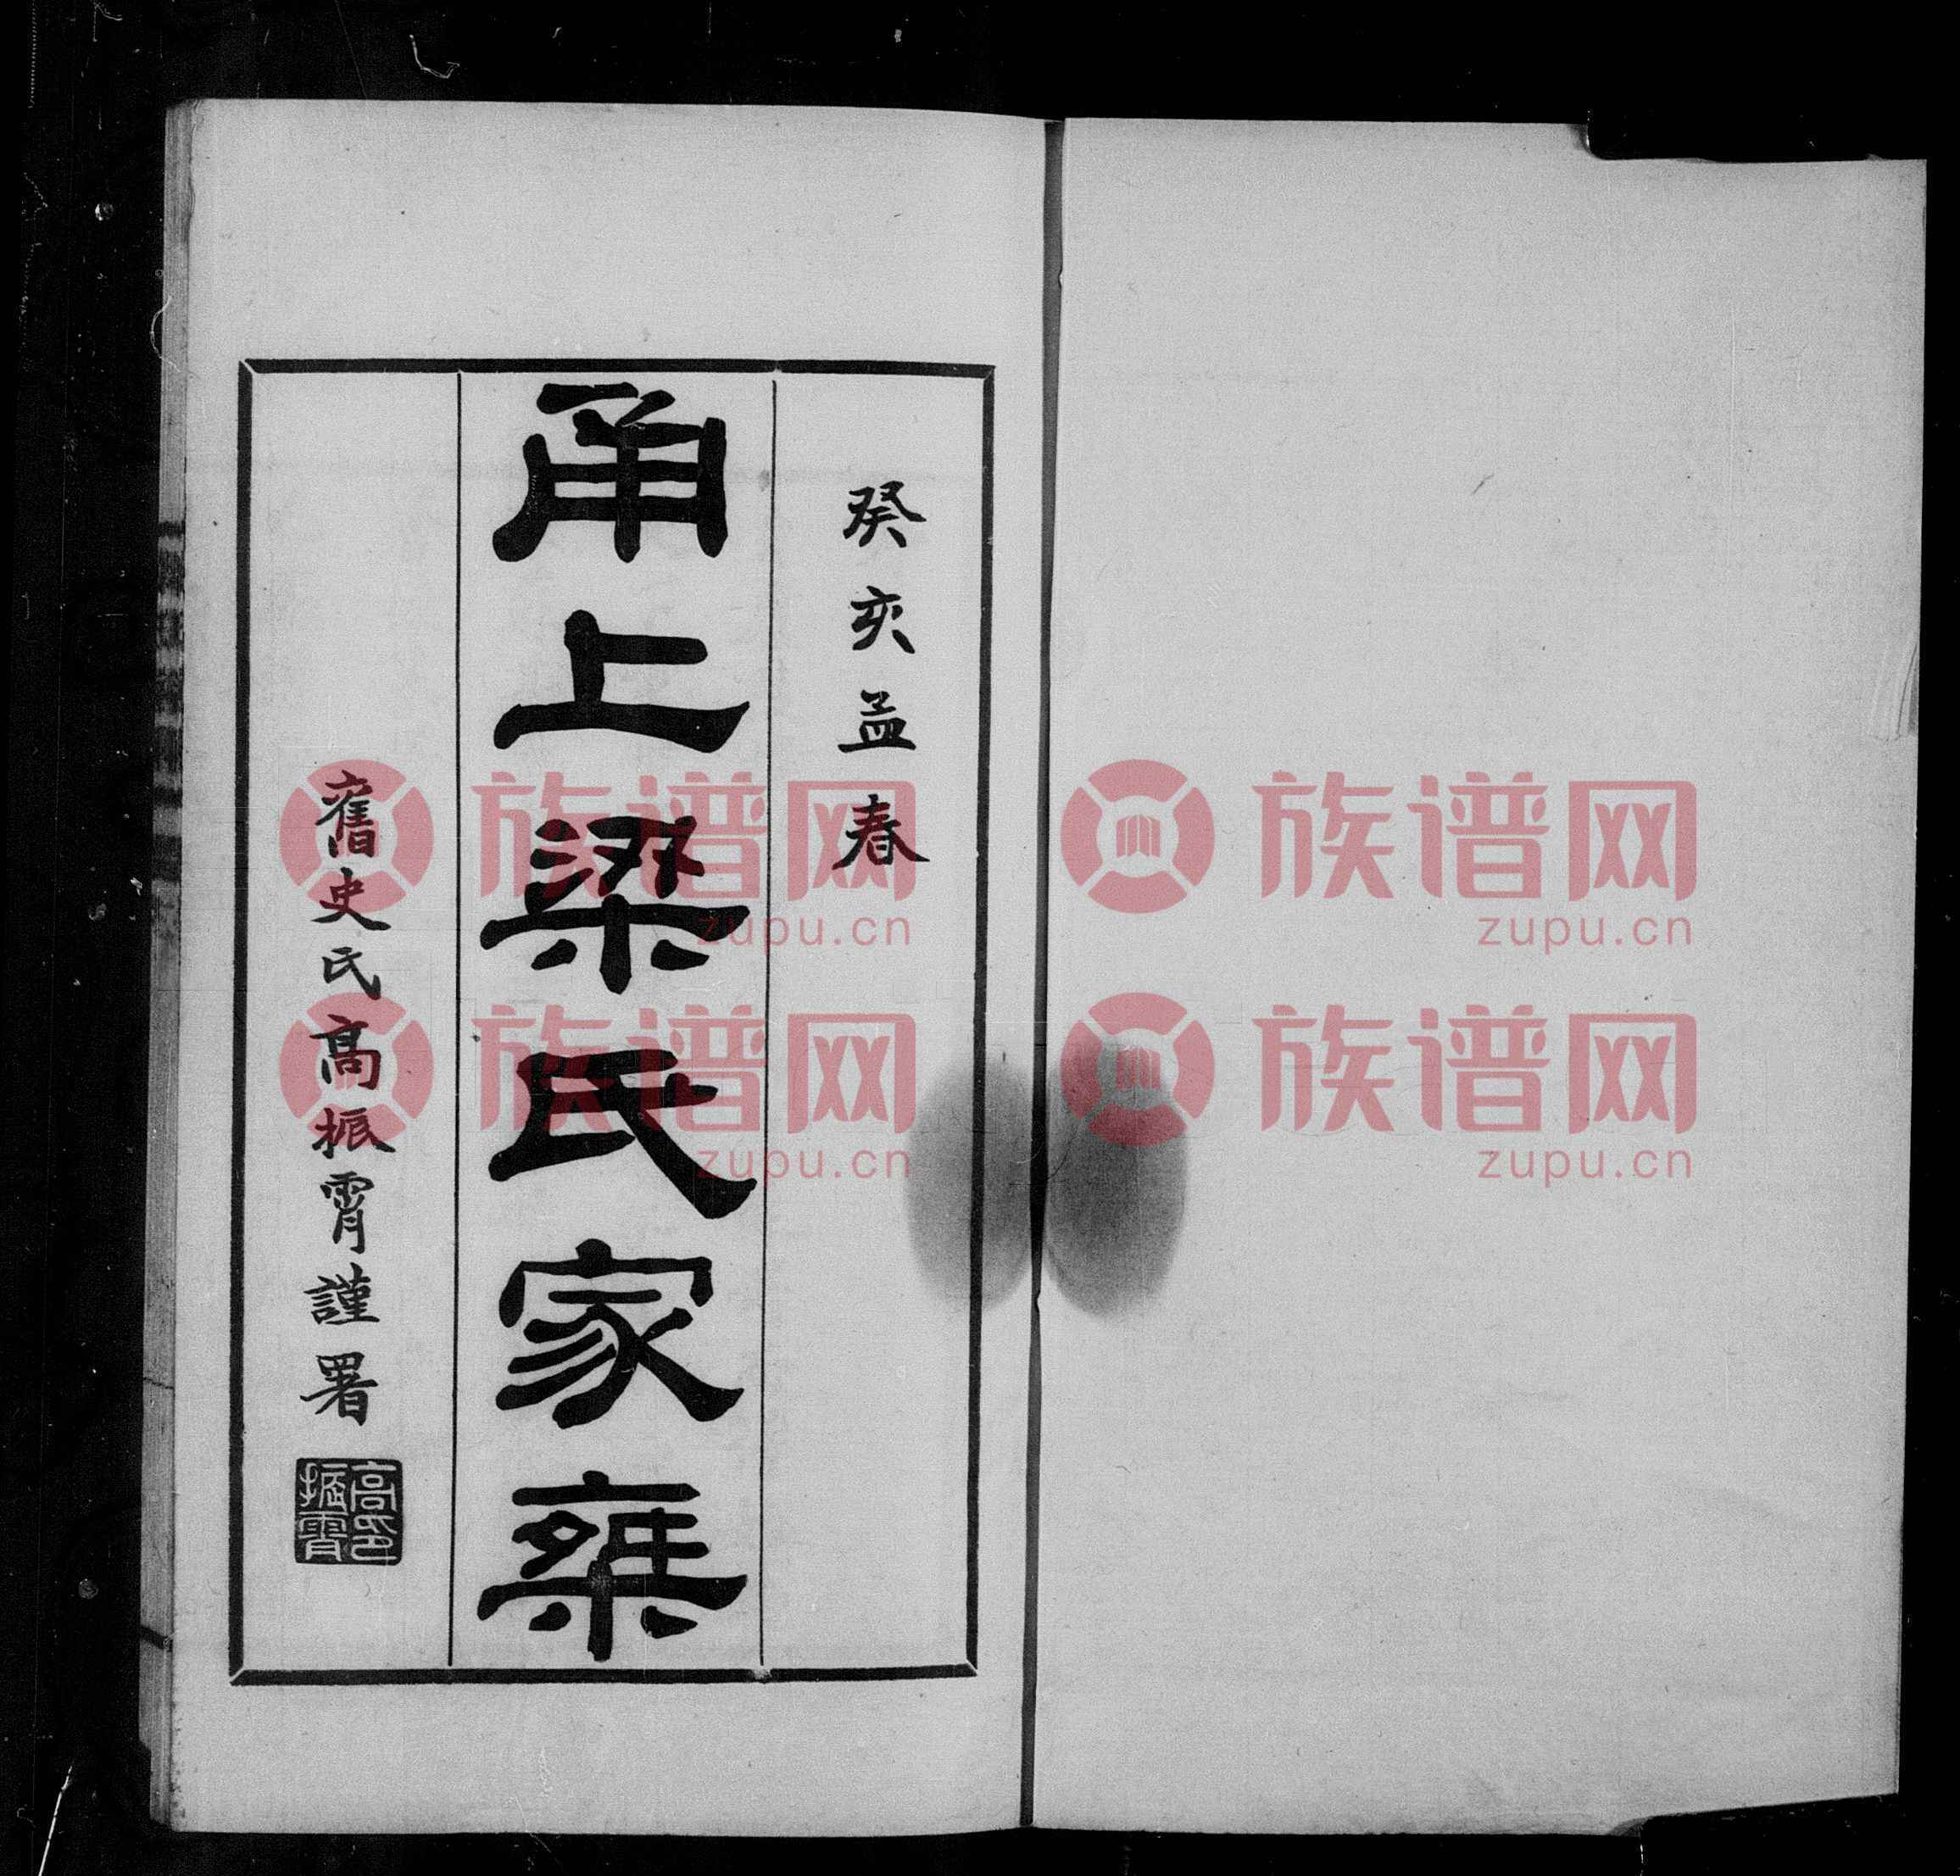 癸亥孟春
甬上梁氏家乘
舊史氏高振霄謹署
高振霄印
族谱网
zupu.cn
族谱网
zupu.cn
族谱网
zupu.cn
族谱网
zupu.cn